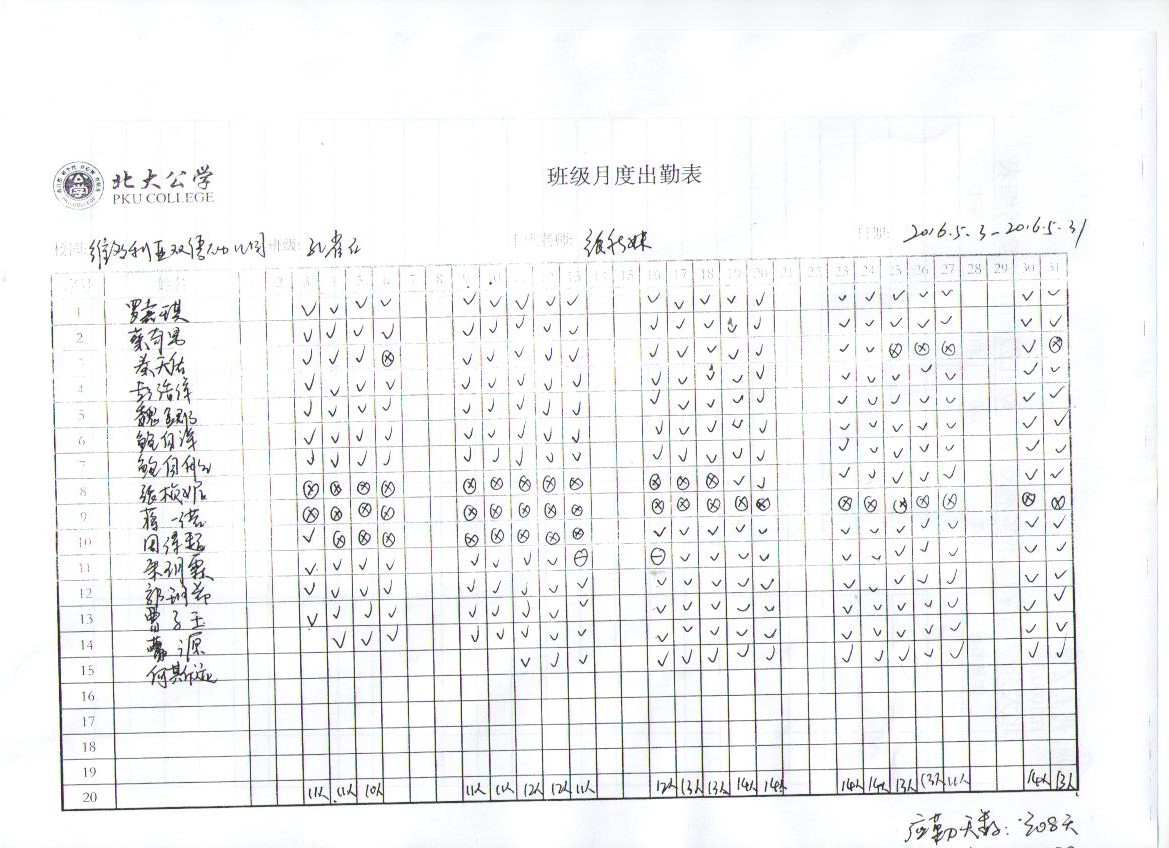 北大公学 班级月度出勤表
PKU COLLEGE
班级: 孔雀石 主班老师: 张 妹 日期: 2016.5.3-2016.5.31
序号 姓名 2 3 4 5 6 7 8 9 10 11 12 13 14 15 16 17 18 19 20 21 22 23 24 25 26 27 28 29 30 31
1 罗 琪 ✓ ✓ ✓ ✓ ✓ ✓ ✓ ✓ ✓ ✓ ✓ ✓ ✓ ✓ ✓ ✓ ✓ ✓ ✓ ✓ ✓
2 蔡奇男 ✓ ✓ ✓ ✓ ✓ ✓ ✓ ✓ ✓ ✓ ✓ ✓ ✓ ✓ ✓ ✓ ✓ ✓ ✓ ✓ ✓
3 秦天佑 ✓ ✓ ✓ ⊗ ✓ ✓ ✓ ✓ ✓ ✓ ✓ ✓ ✓ ✓ ✓ ✓ ⊗ ⊗ ⊗ ✓ ⊗
4 彭浩洋 ✓ ✓ ✓ ✓ ✓ ✓ ✓ ✓ ✓ ✓ ✓ ✓ ✓ ✓ ✓ ✓ ✓ ✓ ✓ ✓ ✓
5 魏 ✓ ✓ ✓ ✓ ✓ ✓ ✓ ✓ ✓ ✓ ✓ ✓ ✓ ✓ ✓ ✓ ✓ ✓ ✓ ✓ ✓
6 鲍 ✓ ✓ ✓ ✓ ✓ ✓ ✓ ✓ ✓ ✓ ✓ ✓ ✓ ✓ ✓ ✓ ✓ ✓ ✓ ✓ ✓
7 鲍 ✓ ✓ ✓ ✓ ✓ ✓ ✓ ✓ ✓ ✓ ✓ ✓ ✓ ✓ ✓ ✓ ✓ ✓ ✓ ✓ ✓
8 张 妮 ⊗ ⊗ ⊗ ⊗ ⊗ ⊗ ⊗ ⊗ ⊗ ⊗ ⊗ ⊗ ✓ ✓ ✓ ✓ ✓ ✓ ✓ ✓ ✓
9 蒋一诺 ⊗ ⊗ ⊗ ⊗ ⊗ ⊗ ⊗ ⊗ ⊗ ⊗ ⊗ ⊗ ⊗ ⊗ ⊗ ⊗ ⊗ ⊗ ⊗ ⊗ ⊗
10 周 ✓ ⊗ ⊗ ⊗ ⊗ ⊗ ⊗ ⊗ ⊗ ✓ ✓ ✓ ✓ ✓ ✓ ✓ ✓ ✓ ✓ ✓ ✓
11 朱 霖 ✓ ✓ ✓ ✓ ✓ ✓ ✓ ✓ ⊖ ⊖ ✓ ✓ ✓ ✓ ✓ ✓ ✓ ✓ ✓ ✓ ✓
12 ✓ ✓ ✓ ✓ ✓ ✓ ✓ ✓ ✓ ✓ ✓ ✓ ✓ ✓ ✓ ✓ ✓ ✓ ✓ ✓ ✓
13 曹子玉 ✓ ✓ ✓ ✓ ✓ ✓ ✓ ✓ ✓ ✓ ✓ ✓ ✓ ✓ ✓ ✓ ✓ ✓ ✓ ✓ ✓
14 源 ✓ ✓ ✓ ✓ ✓ ✓ ✓ ✓ ✓ ✓ ✓ ✓ ✓ ✓ ✓ ✓ ✓ ✓ ✓ ✓
15 何斯 ✓ ✓ ✓ ✓ ✓ ✓ ✓ ✓ ✓ ✓ ✓ ✓ ✓ ✓ ✓
16
17
18
19
20 11人 11人 10人 11人 11人 12人 12人 11人 12人 13人 13人 14人 14人 14人 14人 13人 13人 11人 14人 13人
应勤天数: 308天